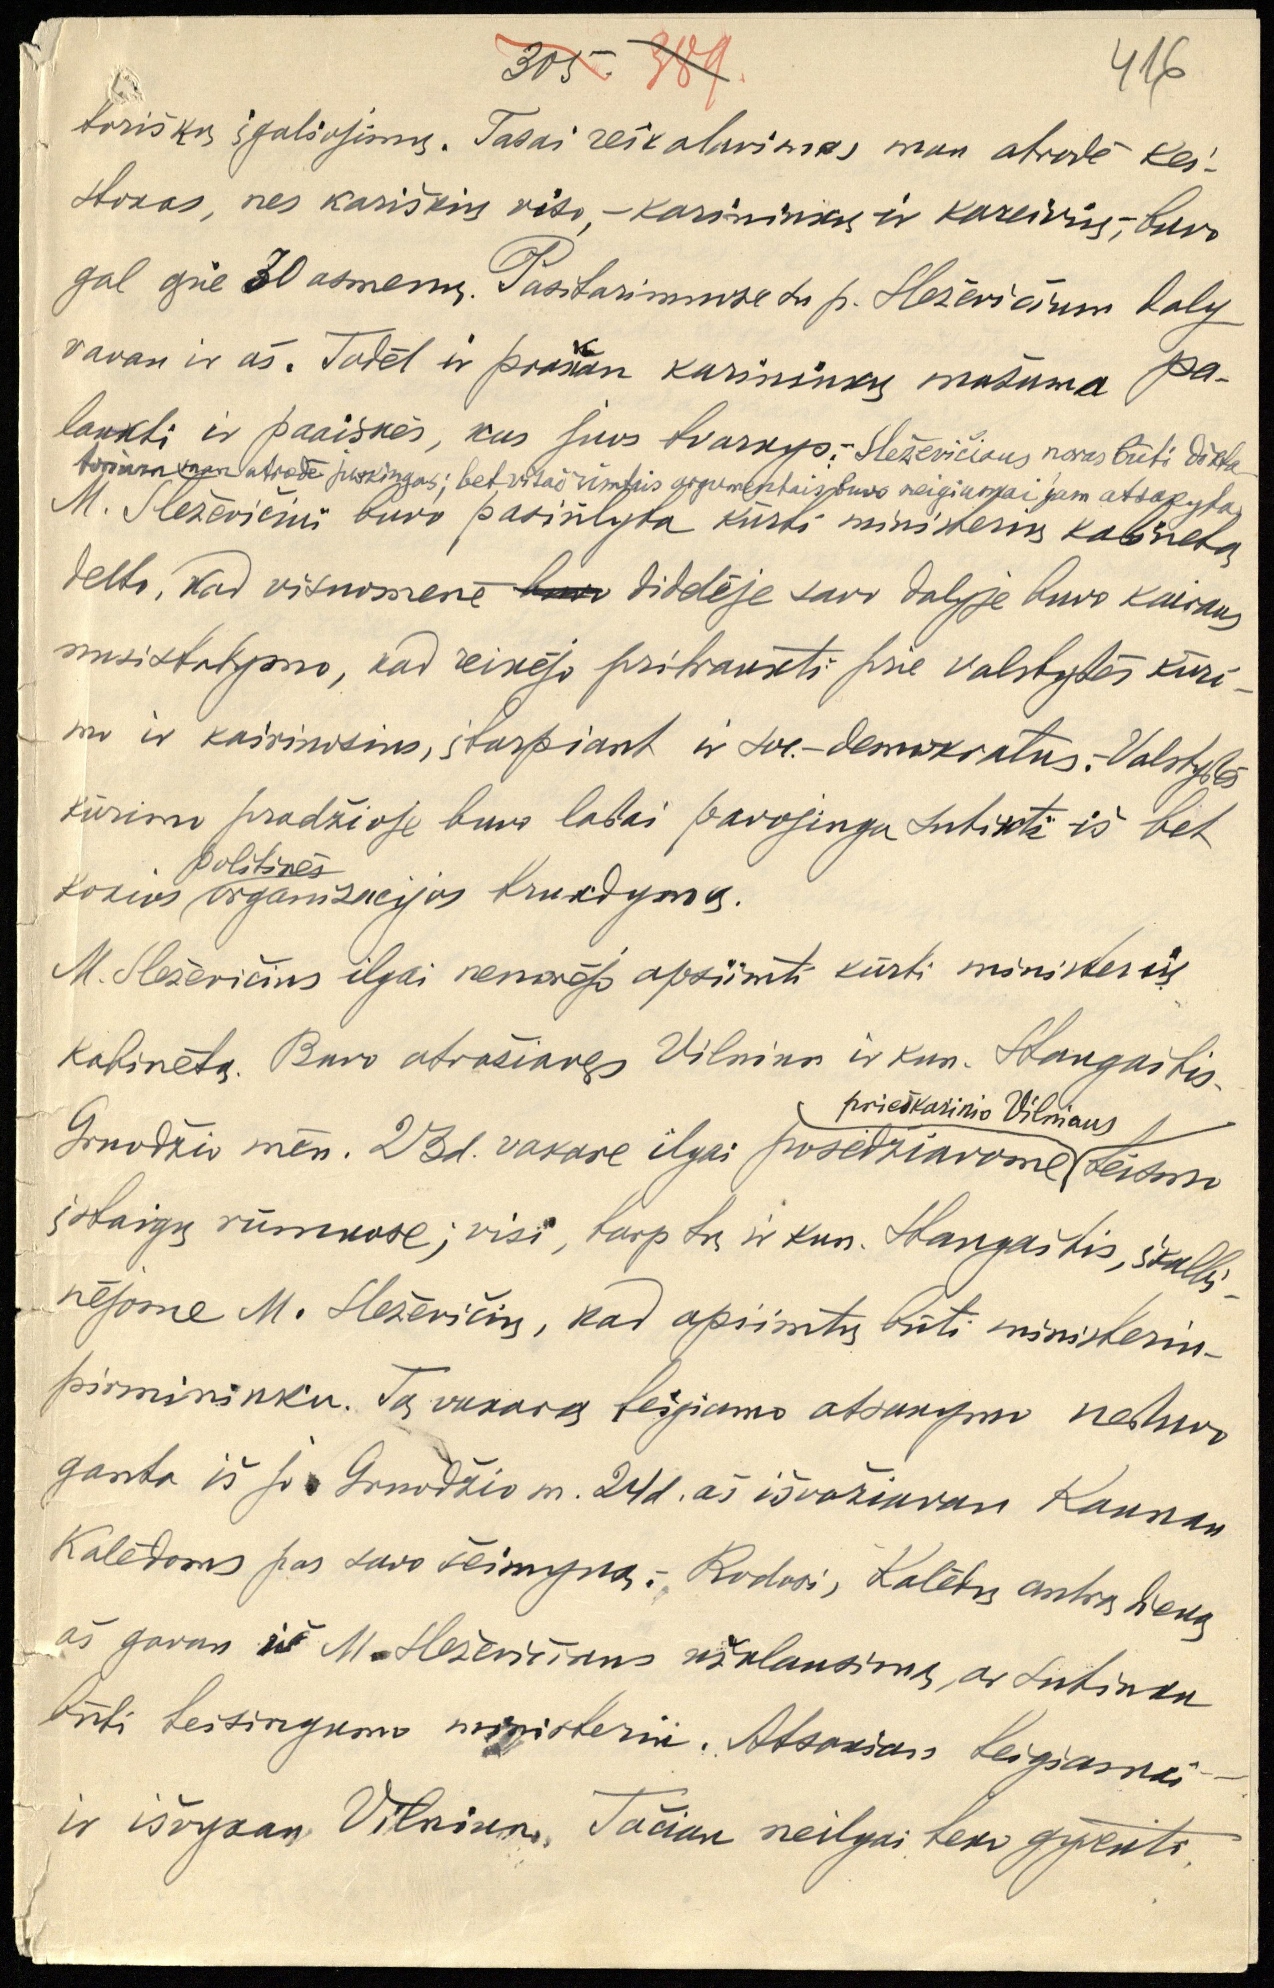 305. 389. 416
toriškų įgaliojimų. Tasai reikalavimas man atrodė kei-
stokas, nes kariškių viso, - karininkų ir kareivių, - buvo
gal apie 30 asmenų. Pasitarimuose su p. Sleževičium daly
vavau ir aš. Todėl ir prašiau karininkų mažuma pa-
laukti ir paaiškės, kas juos tvarkys. - Sleževičiaus noras būti dikta-
torium man atrodė juokingas; bet visai rimtais argumentais buvo neigiamai jam atsakyta.
M. Sleževičiui buvo pasiūlyta kurti ministerių kabinetą
delto, kad visuomenė buvo didėje savo dalyje buvo kairaus
nusistatymo, kad reikėjo pritraukti prie valstybės kūri-
mo ir kairiuosius, įtarpiant ir soc.-demokratus. - Valstybės
kūrimo pradžioje buvo labai pavojinga sutikti iš bet
politinės
kokios organizacijos trukdymą.
M. Sleževičius ilgai nenorėjo apsiimti kurti ministerių
kabinetą. Buvo atvažiavęs Vilniun ir kun. Staugaitis.
prieškarinio Vilniaus
Gruodžio mėn. 23d. vakare ilgai posėdžiavome teismo
įstaigų rūmuose; visi, tarp tų ir kun. Staugaitis, įkalbi-
nėjome M. Sleževičių, kad apsiimtų būti ministeriu-
pirmininku. Tą vakarą teigiamo atsakymo nebuvo
gauta iš jo. Gruodžio m. 24d. aš išvažiavau Kaunan
Kalėdoms pas savo šeimyną. - Rodosi, Kalėdų antrą dieną
aš gavau iš M. Sleževičiaus užklausimą, ar sutinku
būti teisingumo ministeriu. Atsakiau teigiamai -
ir išvykau Vilniun. Tačiau neilgai teko gyventi